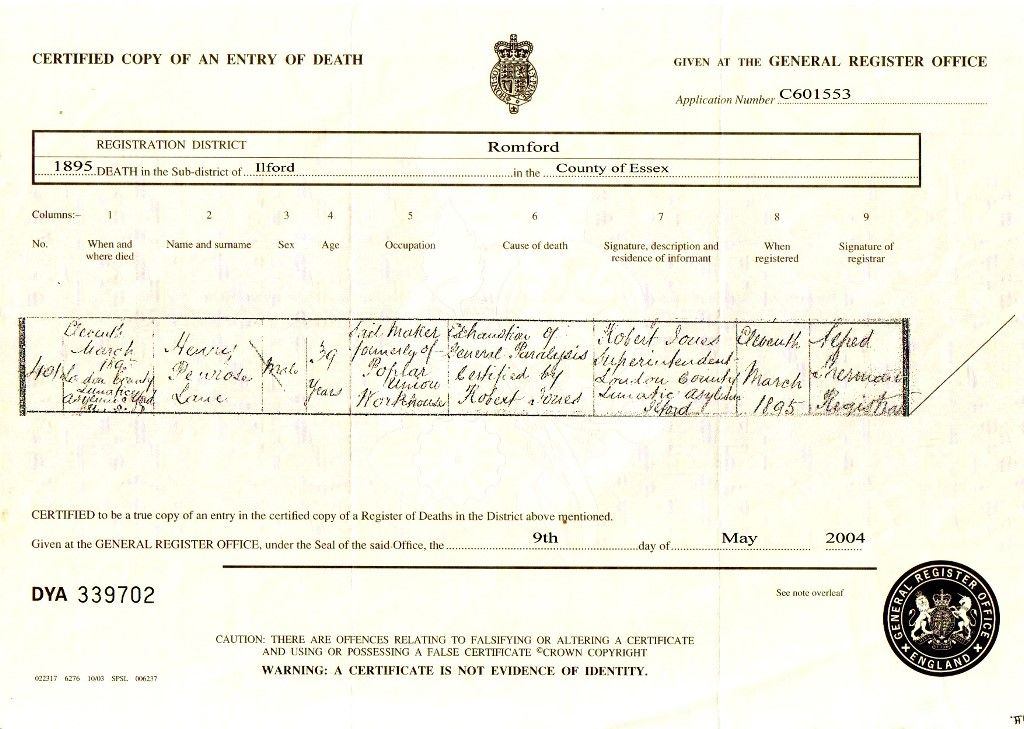 CERTIFIED COPY OF AN ENTRY OF DEATH
GIVEN AT THE GENERAL REGISTER OFFICE
Application Number C601553
REGISTRATION DISTRICT Romford
1895 DEATH in the Sub-district of Ilford in the County of Essex
Columns:- 1 2 3 4 5 6 7 8 9
No. When and where died Name and surname Sex Age Occupation Cause of death Signature, description and residence of informant When registered Signature of registrar
401
Eleventh
March
1895
London County
Lunatic
Asylum
Henry
Penrose
Lane
Male
39
Years
Sail Maker
formerly of
Poplar
Union
Workhouse
Exhaustion of
General Paralysis
Certified by
Robert Jones
Robert Jones
Superintendent
London County
Lunatic Asylum
Ilford
Eleventh
March
1895
Alfred
Registrar
CERTIFIED to be a true copy of an entry in the certified copy of a Register of Deaths in the District above mentioned.
Given at the GENERAL REGISTER OFFICE, under the Seal of the said Office, the 9th day of May 2004
DYA 339702
See note overleaf
GENERAL REGISTER OFFICE
ENGLAND
CAUTION: THERE ARE OFFENCES RELATING TO FALSIFYING OR ALTERING A CERTIFICATE
AND USING OR POSSESSING A FALSE CERTIFICATE ©CROWN COPYRIGHT
WARNING: A CERTIFICATE IS NOT EVIDENCE OF IDENTITY.
022317 6276 10/03 SPSL 006237